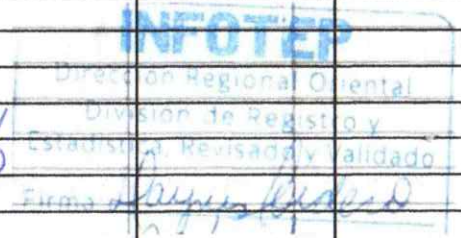 INFOTEP
Dirección Regional Oriental
División de Registro y
Estadística, Revisado y Validado
Firma